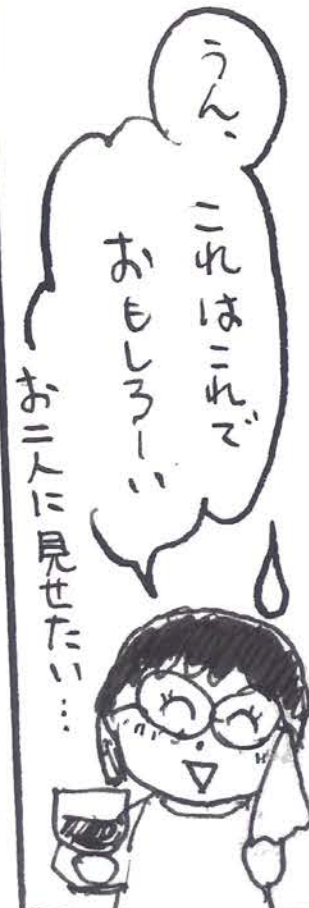 うん、
これはこれで
おもしろーい
お二人に見せたい…